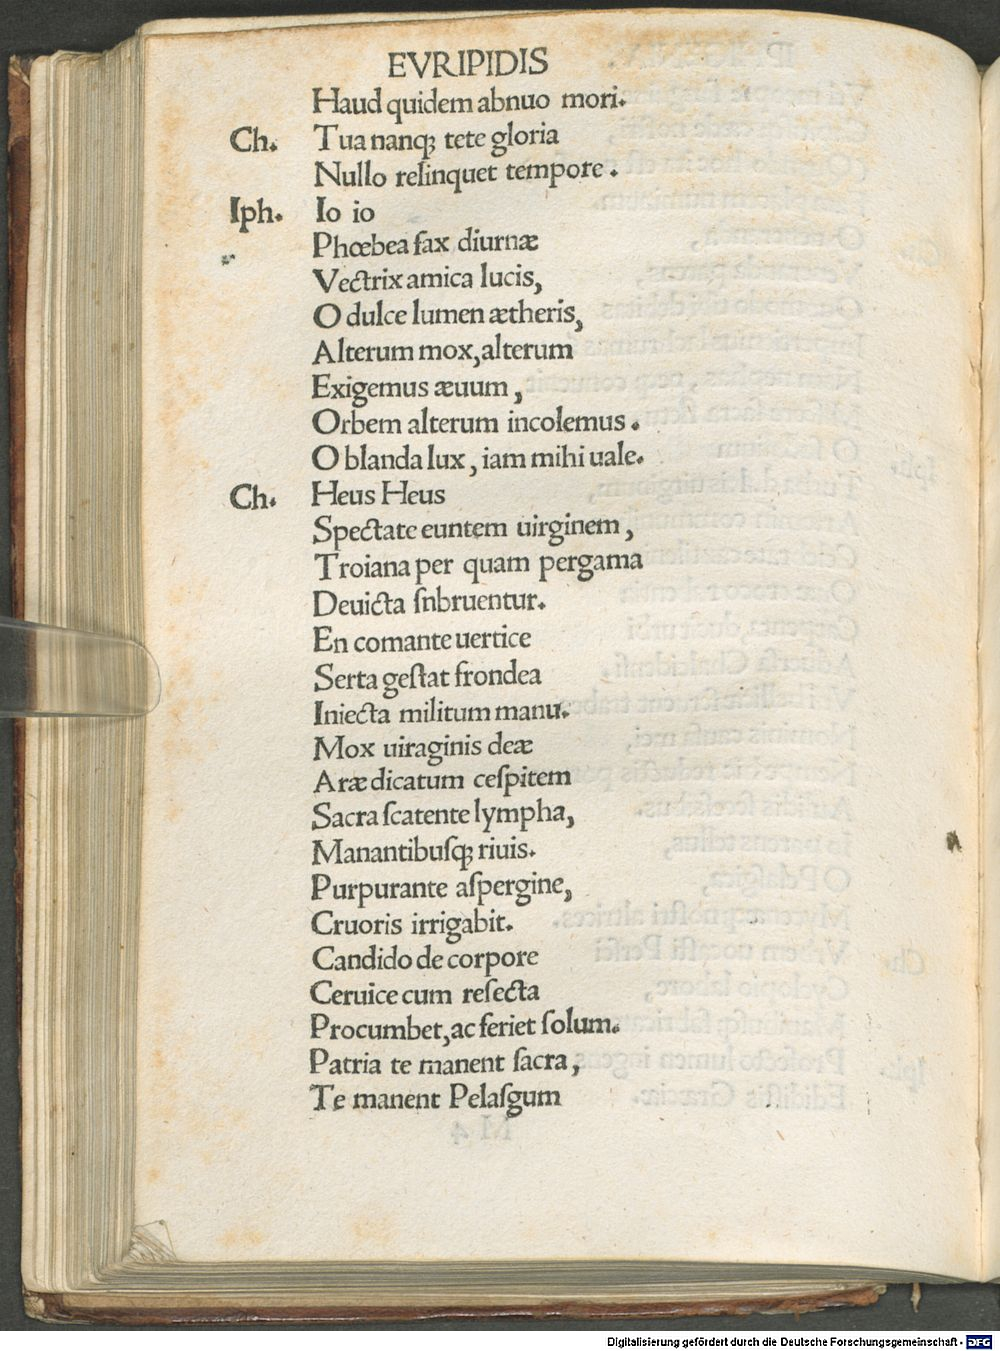 EVRIPIDIS
Haud quidem abnuo mori.
Ch. Tua nanqꝫ te te gloria
Nullo relinquet tempore.
Iph. Io io
Phœbea fax diurnæ
Vectrix amica lucis,
O dulce lumen ætheris,
Alterum mox, alterum
Exigemus æuum,
Orbem alterum incolemus.
O blanda lux, iam mihi uale.
Ch. Heus Heus
Spectate euntem uirginem,
Troiana per quam pergama
Deuicta ſnbruentur.
En comante uertice
Serta geſtat frondea
Iniecta militum manu.
Mox uiraginis deæ
Aræ dicatum ceſpitem
Sacra ſcatente lympha,
Manantibuſqꝫ riuis.
Purpurante aſpergine,
Cruoris irrigabit.
Candido de corpore
Ceruice cum reſecta
Procumbet, ac feriet ſolum.
Patria te manent ſacra,
Te manent Pelaſgum
Digitalisierung gefördert durch die Deutsche Forschungsgemeinschaft - DFG